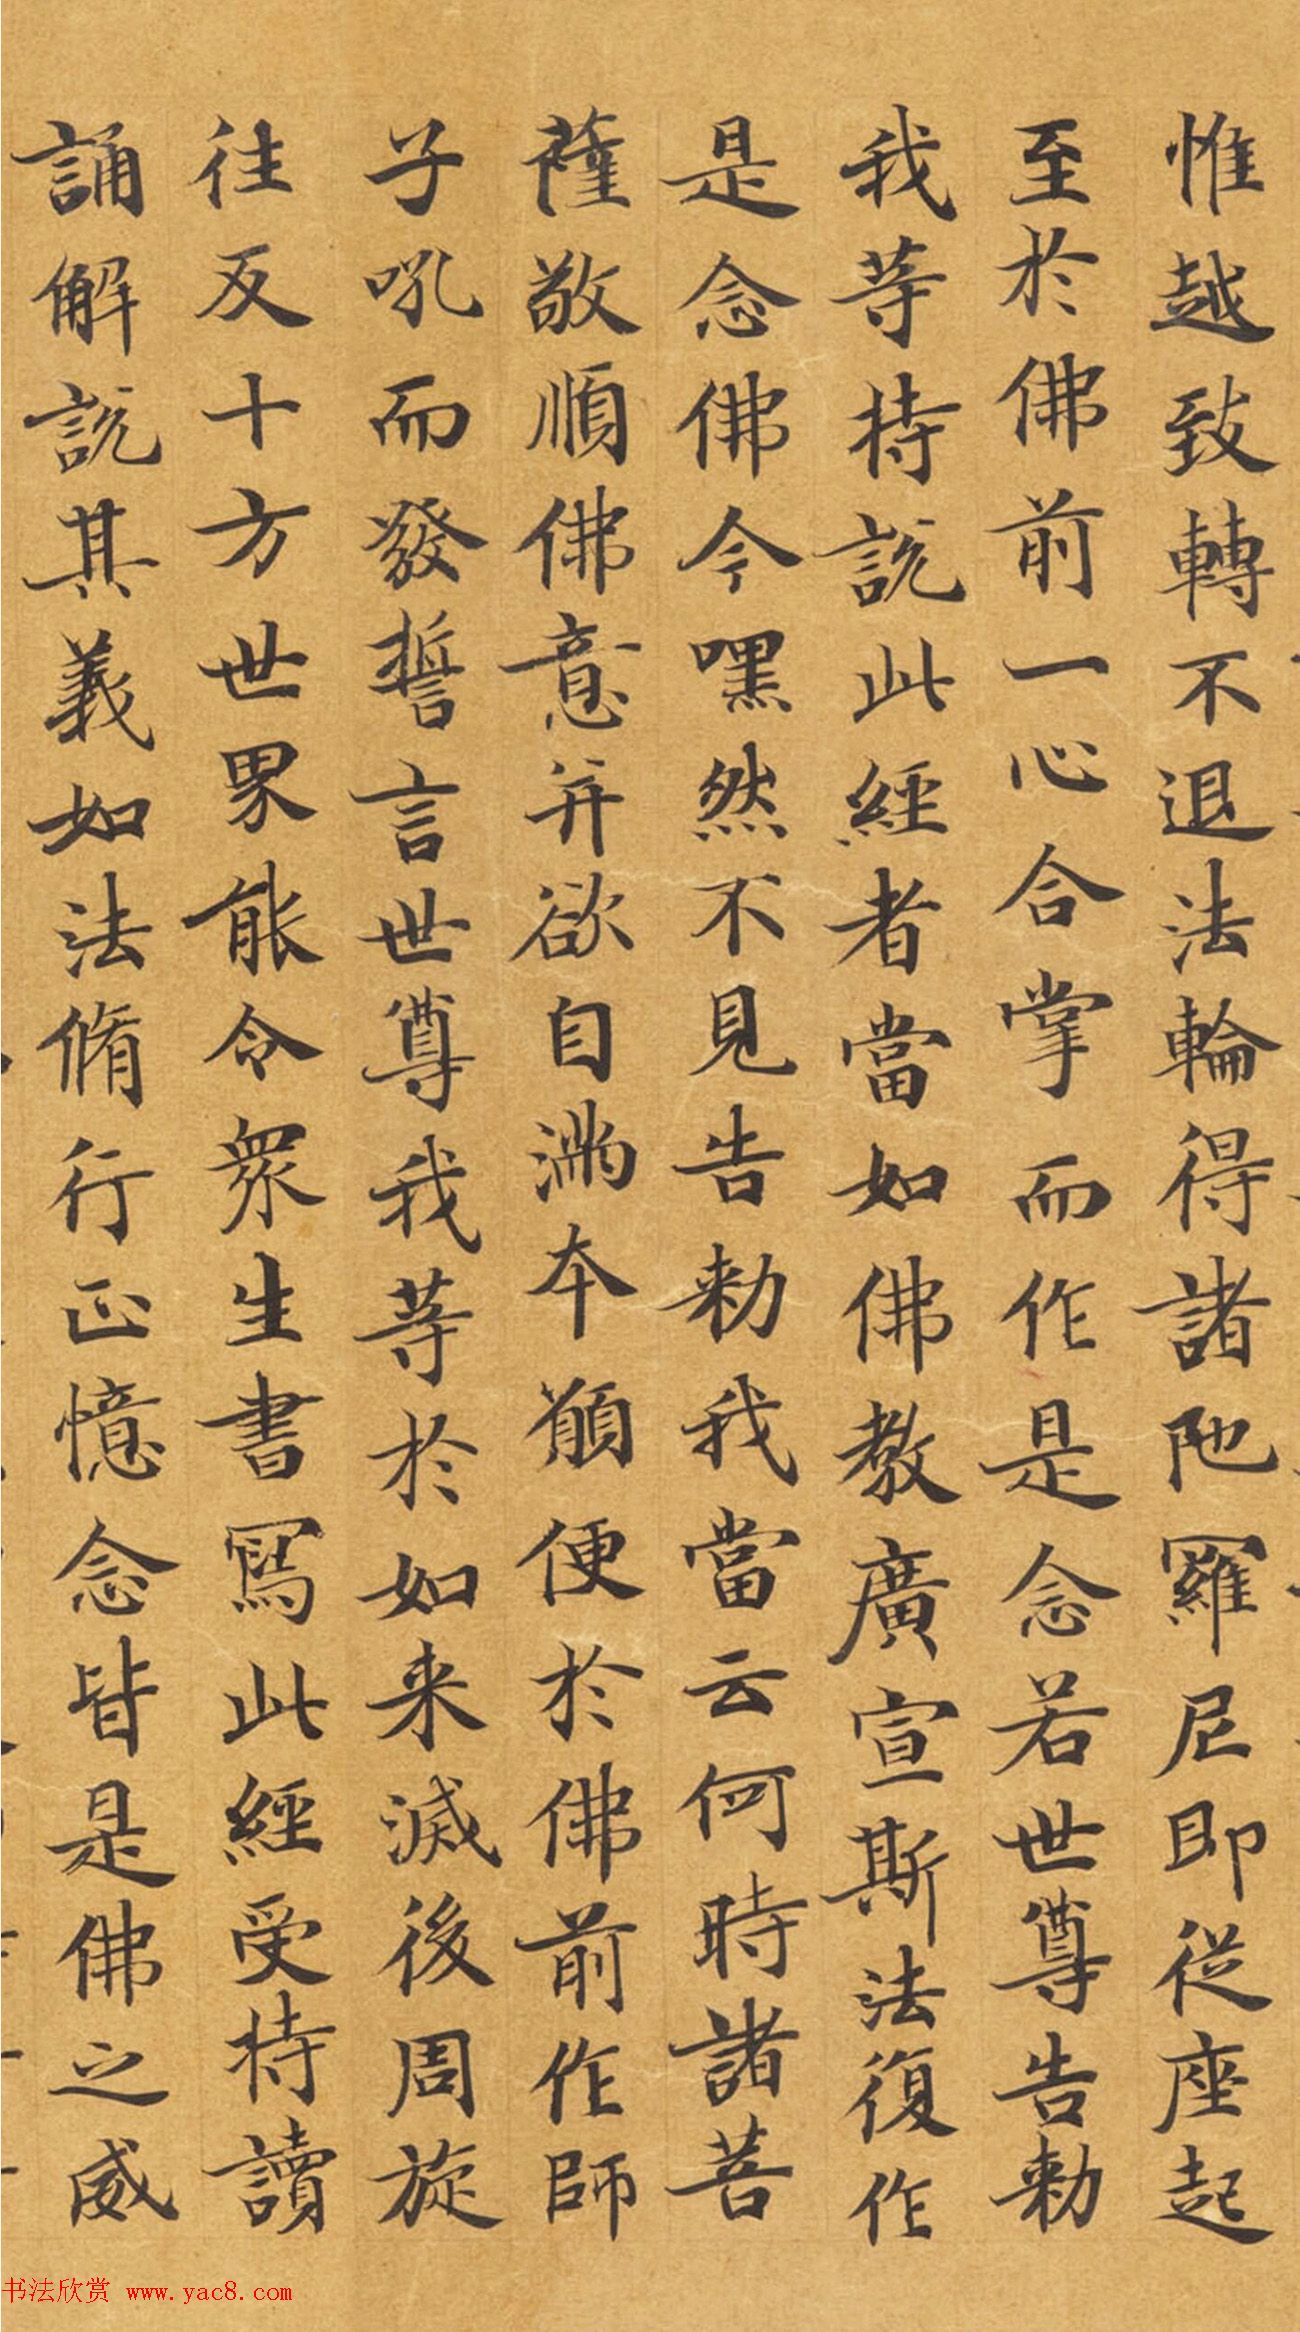 惟越致轉不退法輪得諸陁羅尼即從座起
至於佛前一心合掌而作是念若世尊告勑
我等持説此經者當如佛教廣宣斯法復作
是念佛今嘿然不見告勑我當云何時諸菩
薩敬順佛意并欲自滿本願便於佛前作師
子吼而發誓言世尊我等於如来滅後周旋
往反十方世界能令衆生書寫此經受持讀
誦解説其義如法脩行正憶念皆是佛之威
书法欣赏 www.yac8.com